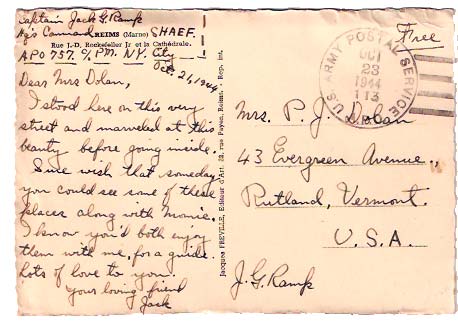 Captain Jack G. Ramp
Hq's Command SHAEF.
REIMS (Marne)
Rue J.-D. Rockefeller Jr et la Cathédrale.
APO 757. c/o P.M. N.Y. City
Oct. 21, 1944
Dear Mrs Dolan,
I stood here on this very
street and marveled at this
beauty before going inside.
Sure wish that someday
you could see some of these
places along with Monie.
I know you'd both enjoy
them with me, for a guide.
Lots of love to you.
Your loving friend
Jack
Jacques FREVILLE, Editeur d'Art, rue Reims. - Rep. int.
Free
U.S. ARMY POSTAL SERVICE
OCT
23
1944
113
Mrs. P. J. Dolan
43 Evergreen Avenue.,
Rutland, Vermont.
U.S.A.
J.G. Ramp